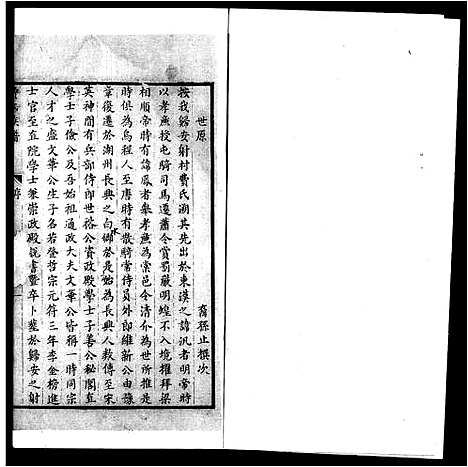 世原
裔孫止撰次
按我歸安射村費氏溯其先出於東漢之諱汎者明帝時
以孝廉授屯騎司馬遷蕭令賞罰嚴明蝗不入境擢拜梁
相順帝時有諱鳳者舉孝廉為棠邑令清介為世所推是
時俱為烏程人至唐時有散騎常侍員外郎維新公由豫
章復遷於湖州長興之白鄉於是始為長興人數傳至宋
英神間有兵部侍郎世裕公資政殿學士子善公秘閣直
學士子儉公及若始祖通政大夫文華公皆稱一時同宗
人才之盛文華公生子名若登哲宗元符三年李金榜進
士官至直院學士兼崇政殿說書暨卒卜塟於歸安之射
序